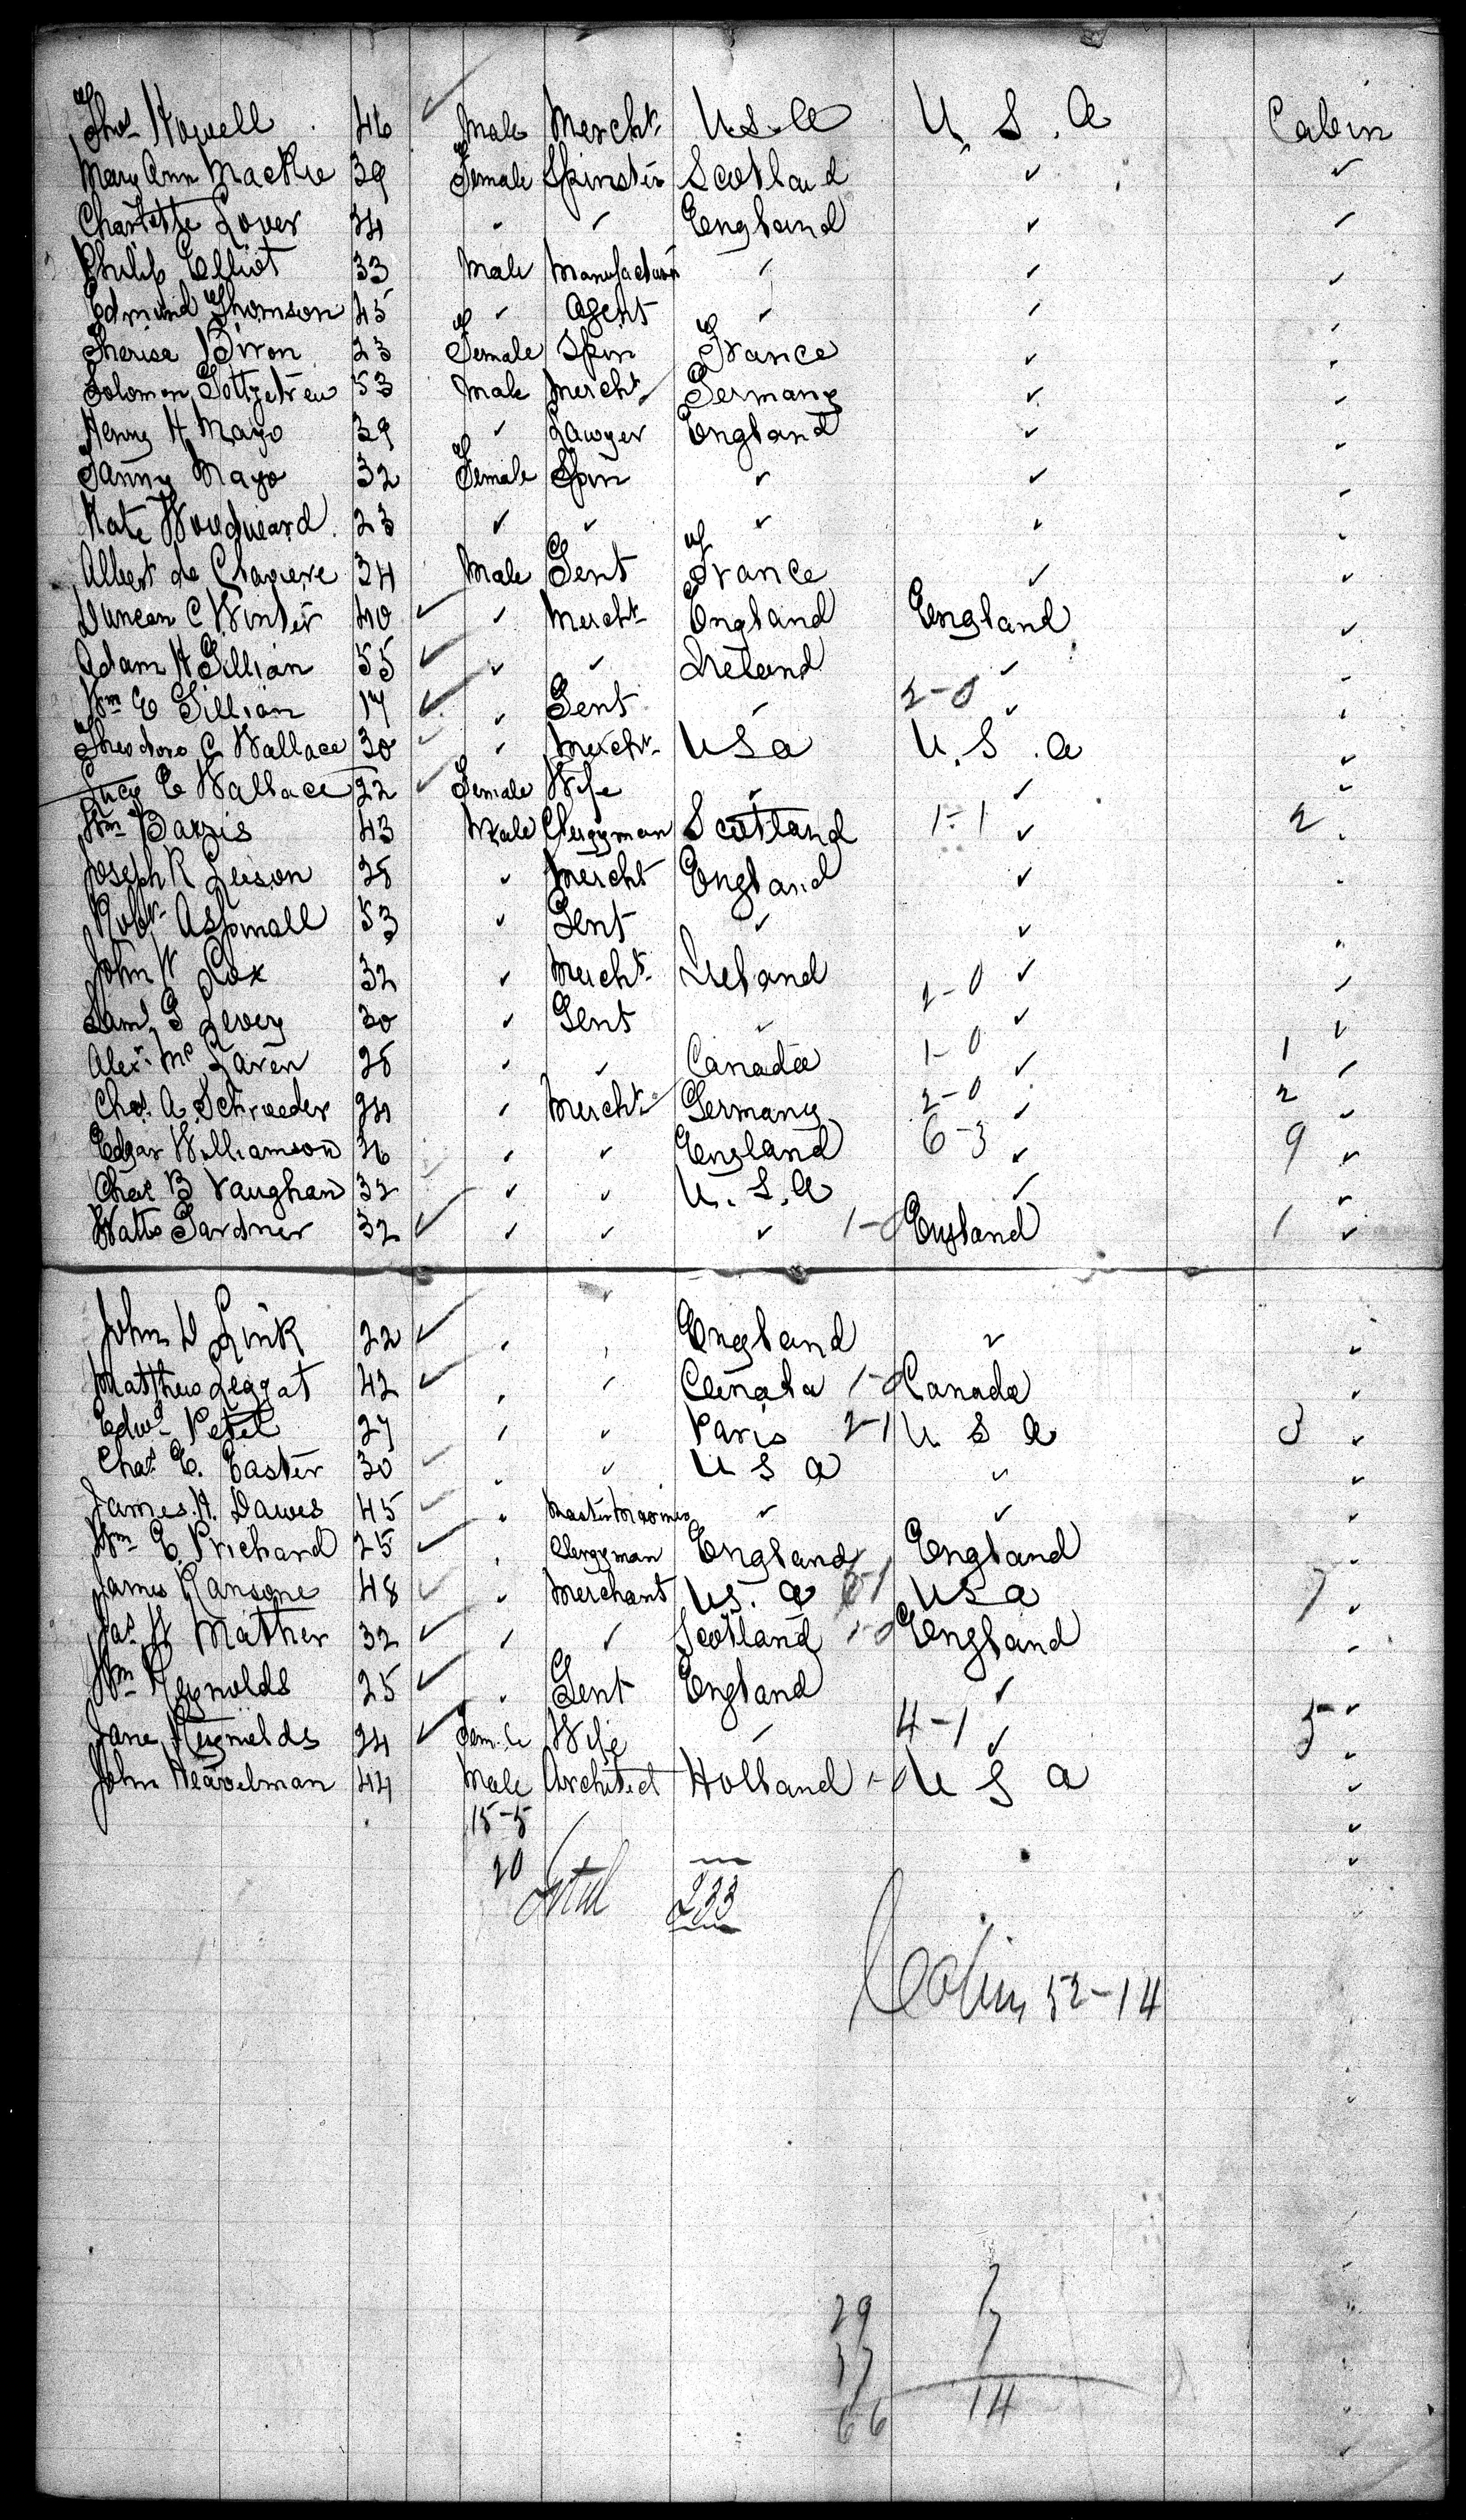 Thos Howell 46 ✓ Male Mercht U.S.A U. S. A Cabin
Mary Ann MacKie 39 Female Spinster Scotland ✓ ✓
Charlotte Lover 34 " ✓ England ✓ ✓
Philip Elliot 33 Male Manufacturer ✓ ✓ ✓
Edmund Thomson 45 ✓ Agent ✓ ✓
Therise Biron 23 Female Spin France ✓
Solomon Gottgetreu 53 Male Mercht Germany ✓
Henry H Mayo 39 ✓ Lawyer England ✓
Fanny Mayo 32 Female Spin ✓ ✓
Kate Woodward 23 ✓ ✓ ✓ ✓
Albert de 34 Male Gent France ✓
Duncan C Winter 40 ✓ ✓ Mercht England England ✓
Adam H Gillian 55 ✓ ✓ ✓ Ireland ✓
Wm E Gillian 17 ✓ ✓ Gent ✓ 2-0 ✓
Theodore C Wallace 30 ✓ ✓ Mercht USA U. S. A ✓
Lucy E Wallace 22 ✓ Female Wife ✓ ✓ ✓
Wm 43 Male Clergyman Scotland 1-1 ✓ 2
Joseph R Leeson 28 ✓ Mercht England ✓
Robt Aspinall 53 ✓ Gent ✓ ✓
John W Cox 32 ✓ Mercht Ireland 2-0 ✓ ✓
Saml G Levey 30 ✓ Gent ✓ ✓ ✓
Alexr McLaren 28 ✓ ✓ Canada 1-0 ✓ 1 ✓
Chas. A. Schroeder 24 ✓ Mercht Germany 2-0 ✓ 2 ✓
Edgar Williamson 26 ✓ ✓ England 6-3 ✓ 9 ✓
Chas B Vaughan 32 ✓ ✓ ✓ U. S. A ✓ ✓
Watts Gardner 32 ✓ ✓ ✓ ✓ 1-0 England 1 ✓
John D Link 22 ✓ ✓ ✓ England ✓ ✓
Matthew Leggat 42 ✓ ✓ ✓ Canada 1-0 Canada ✓
Edwd Petit 27 ✓ ✓ Paris 2-1 U S A 3 ✓
Chas E. Easter 30 ✓ ✓ ✓ U S A ✓ ✓
James H. Dawes 45 ✓ ✓ Master Mariner ✓ ✓ ✓
Wm E. Prichard 25 ✓ ✓ Clergyman England England ✓
James Ransone 48 ✓ ✓ Merchant US. A 6-1 USA 7 ✓
Jas W Mather 32 ✓ ✓ ✓ Scotland 1-0 England ✓
Wm Reynolds 25 ✓ ✓ Gent England ✓ ✓
Jane Reynolds 24 ✓ Female Wife ✓ 4-1 ✓ 5 ✓
John 44 Male Architect Holland 1-0 U S A ✓
15-5
20
Total 233
Cabin 52-14
29 7
37 7
66 14